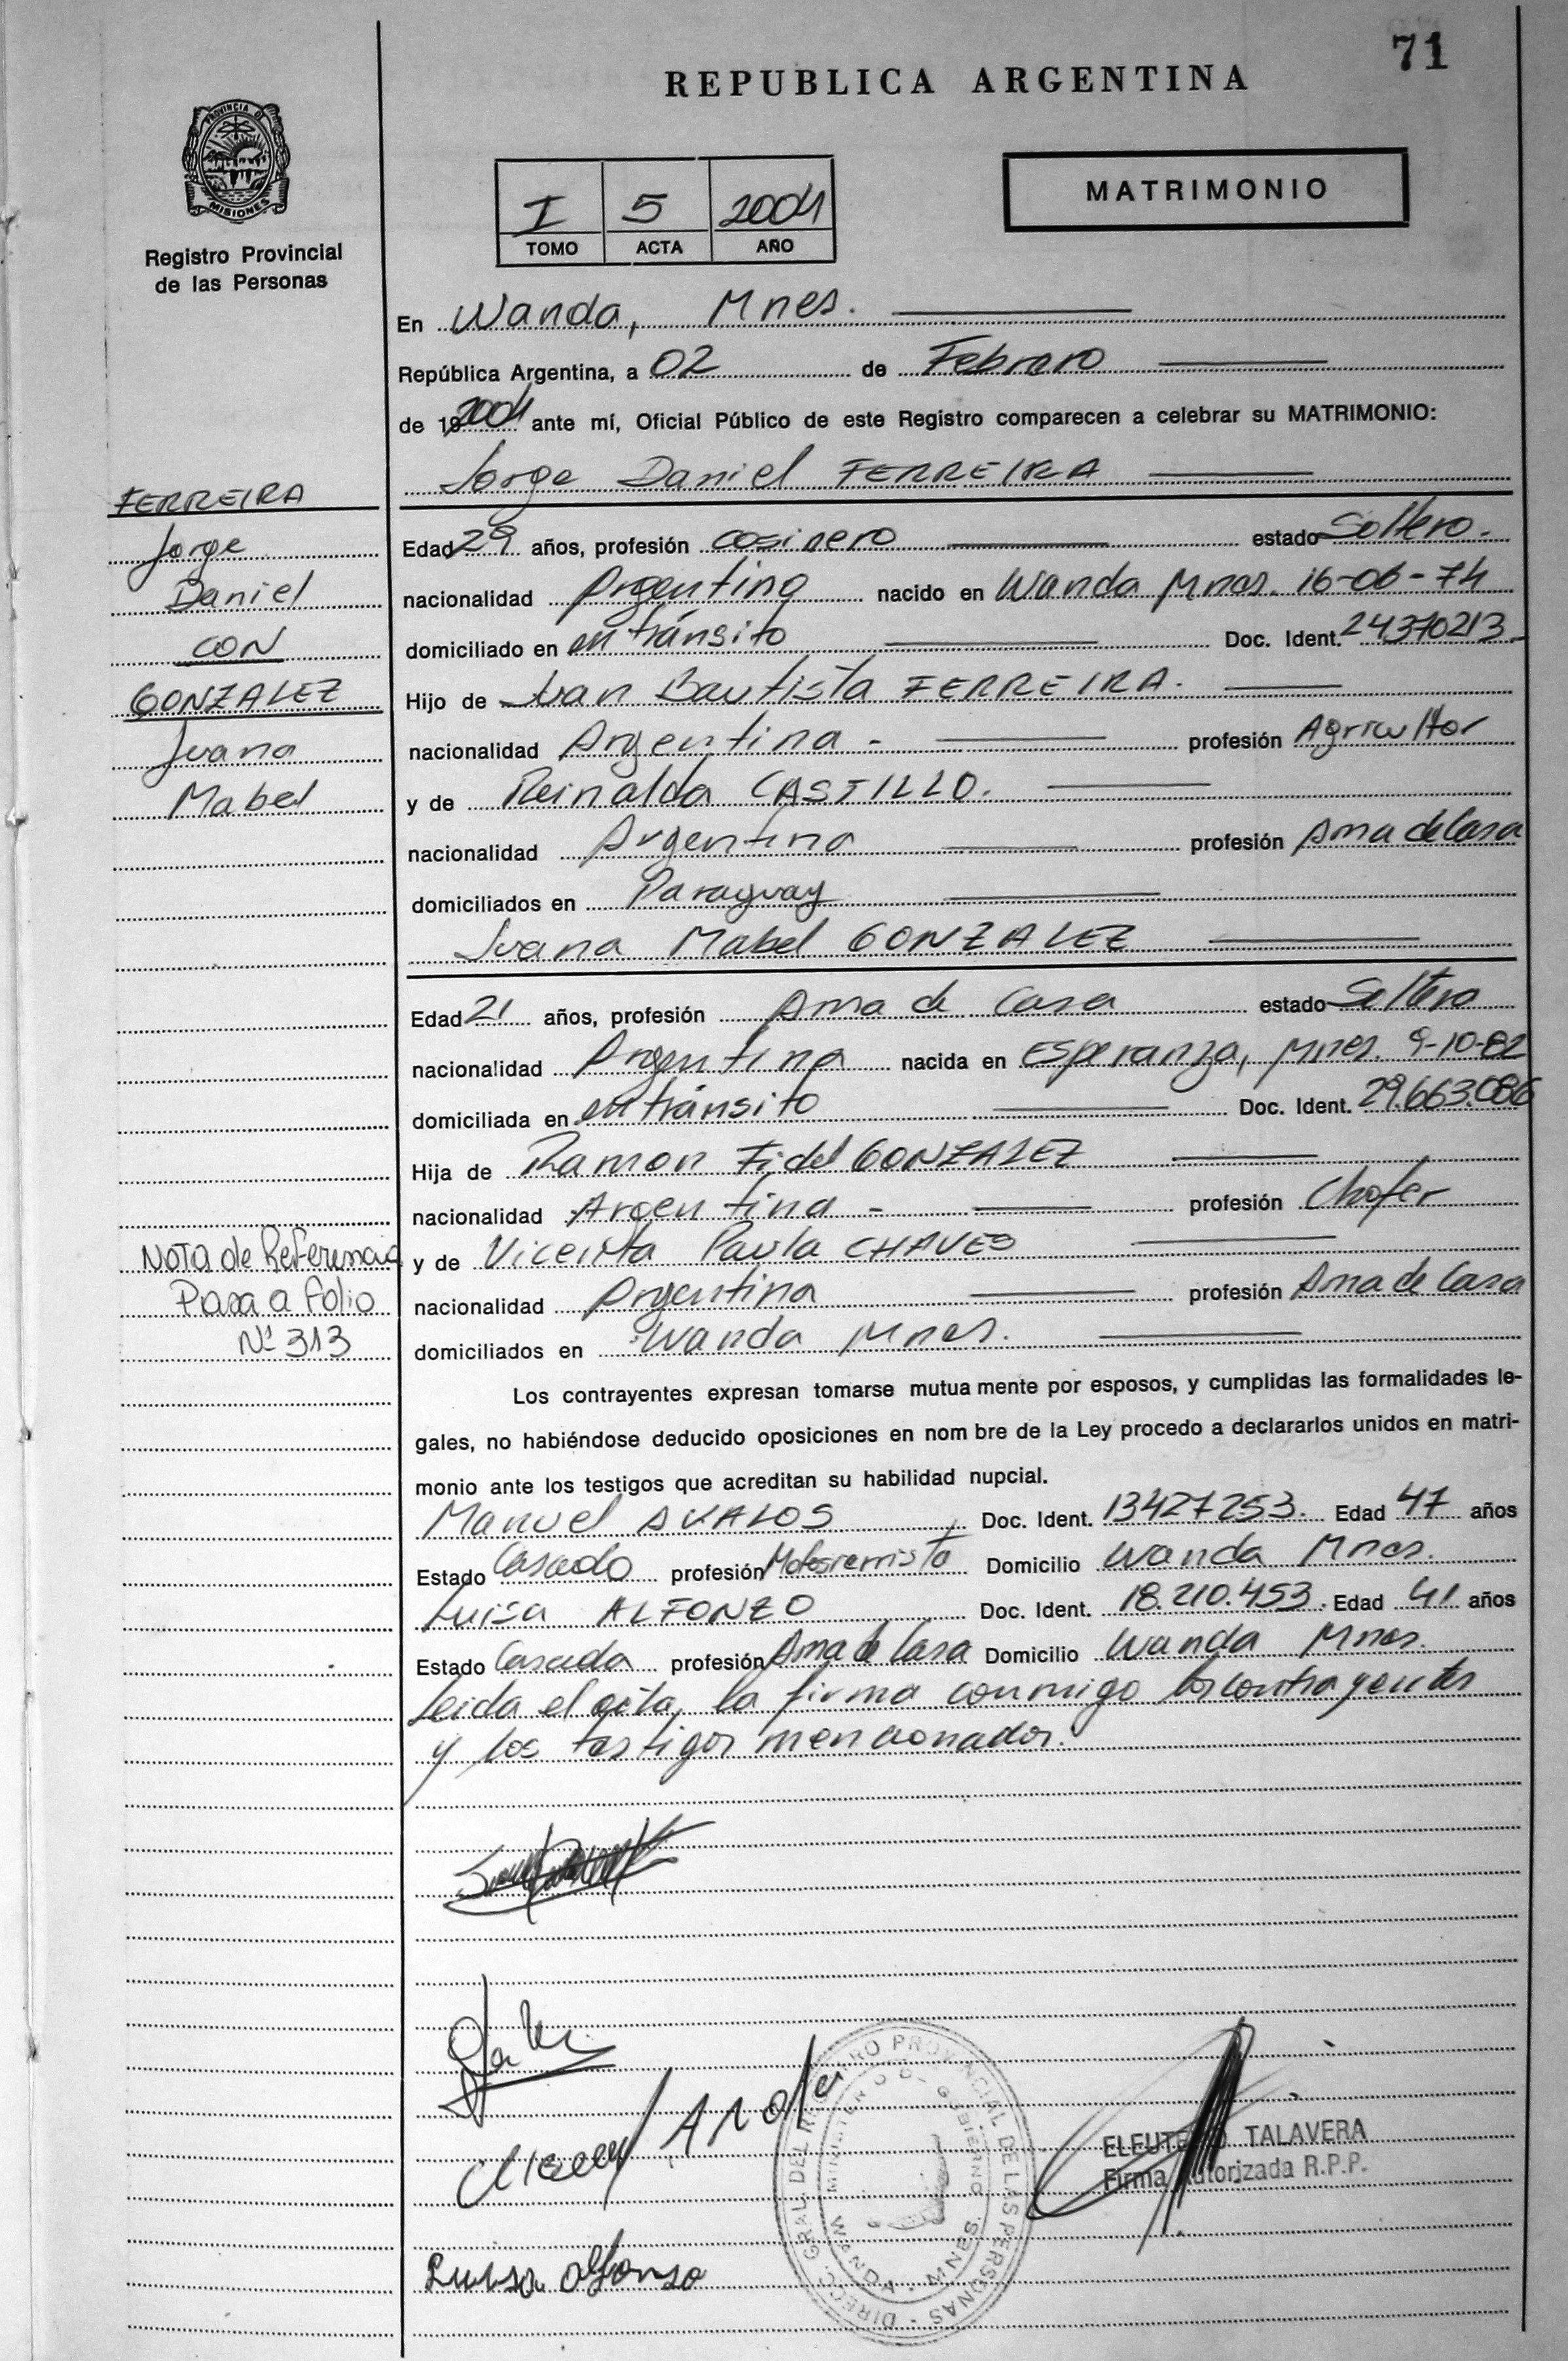 71
REPUBLICA ARGENTINA
PROVINCIA DE
MISIONES
Registro Provincial
de las Personas
I 5 2004
TOMO ACTA AÑO
MATRIMONIO
En Wanda, Mnes.
República Argentina, a 02 de Febrero
de 192004 ante mí, Oficial Público de este Registro comparecen a celebrar su MATRIMONIO:
Jorge Daniel FERREIRA
FERREIRA
Jorge
Daniel
CON
GONZALEZ
Juana
Mabel
Edad 29 años, profesión cosinero estado Soltero.
nacionalidad Argentina nacido en Wanda Mnes. 16-06-74
domiciliado en en tránsito Doc. Ident. 24370213
Hijo de Juan Bautista FERREIRA.
nacionalidad Argentina - profesión Agricultor
y de Reinalda CASTILLO.
nacionalidad Argentina profesión Ama de Casa
domiciliados en Paraguay
Juana Mabel GONZALEZ
Edad 21 años, profesión Ama de Casa estado Soltera
nacionalidad Argentina nacida en Esperanza, Mnes. 9-10-82
domiciliada en en tránsito Doc. Ident. 29.663.086
Hija de Ramon Fidel GONZALEZ
nacionalidad Argentina - profesión Chofer
y de Vicenta Paula CHAVES
nacionalidad Argentina profesión Ama de Casa
domiciliados en Wanda Mnes.
Nota de Referencia
Pasa a Folio
Nº 313
Los contrayentes expresan tomarse mutua mente por esposos, y cumplidas las formalidades le-
gales, no habiéndose deducido oposiciones en nom bre de la Ley procedo a declararlos unidos en matri-
monio ante los testigos que acreditan su habilidad nupcial.
Manuel AVALOS Doc. Ident. 13427253. Edad 47 años
Estado Casado profesión Motosierrista Domicilio Wanda Mnes.
Luisa ALFONZO Doc. Ident. 18.210.453. Edad 41 años
Estado Casada profesión Ama de Casa Domicilio Wanda Mnes.
Leida el acta, la firma conmigo los contrayentes
y los testigos mencionados.
DIRECC. GRAL. DEL REGISTRO PROVINCIAL DE LAS PERSONAS
MINISTERIO DE GOBIERNO
WANDA - MNES.
ELEUTERIO TALAVERA
Firma Autorizada R.P.P.
Luisa Alfonso